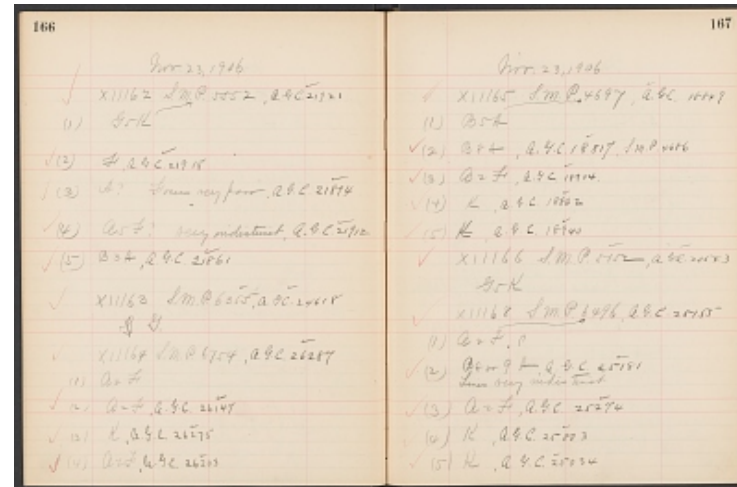 166
Nov. 23, 1906
X11162 S.M.P. 5552, A.G.C. 21921
(1) G5K
(2) F, A.G.C. 21918
(3) A? Lines very faint, A.G.C. 21894
(4) A or F? very indistinct, A.G.C. 21912
(5) B8A, A.G.C. 21861
X11163 S.M.P. 6365, A.G.C. 24618
G
X11164 S.M.P. 6754, A.G.C. 26287
(1) A2F
(2) A2F, A.G.C. 26147
(3) K, A.G.C. 26275
(4) A2F, A.G.C.
167
Nov. 23, 1906
X11165 S.M.P. 4697, A.G.C.
(1) B8A
(2) B8A, A.G.C. 18817, S.M.P. 4686
(3) A2F, A.G.C. 18904
(4) K, A.G.C. 18802
(5) K, A.G.C. 18940
X11166 S.M.P. A.G.C.
G5K
X11168 S.M.P. 6496, A.G.C. 25155
(1) A2F,
(2) B8 or 9 A, A.G.C. 25181
Lines very indistinct
(3) A2F, A.G.C. 25274
(4) K, A.G.C. 25003
(5) K, A.G.C. 25034